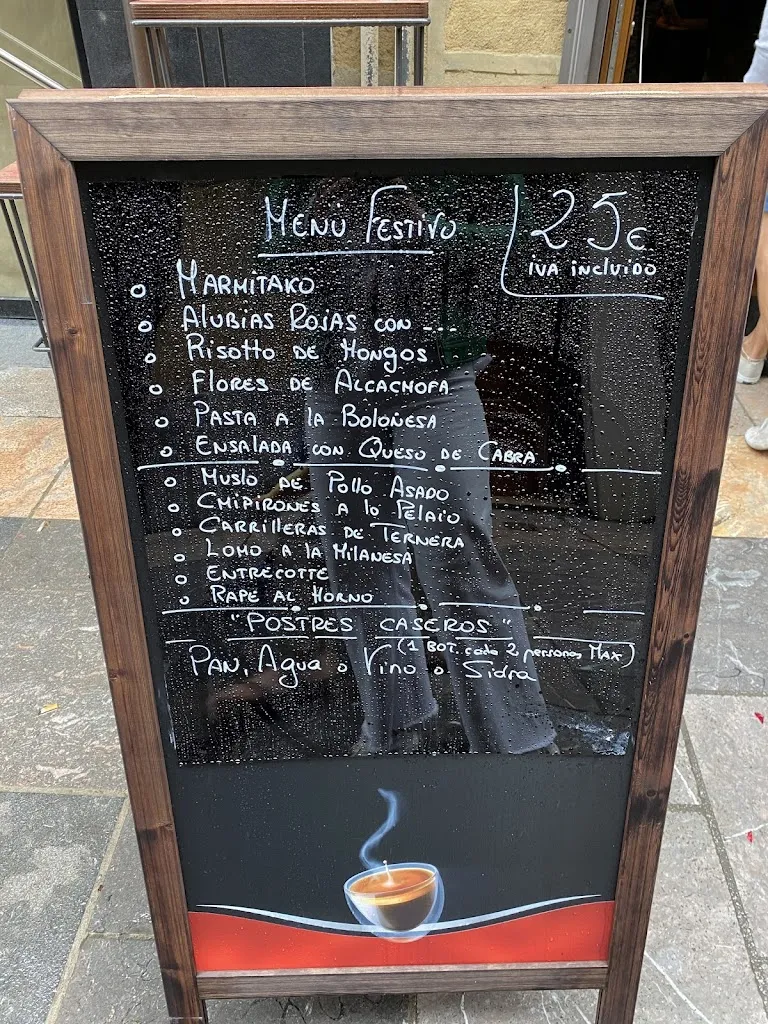 MENÚ FESTIVO
25€
IVA INCLUIDO
MARMITAKO
ALUBIAS ROJAS CON ---
RISOTTO DE HONGOS
FLORES DE ALCACHOFA
PASTA A LA BOLOÑESA
ENSALADA CON QUESO DE CABRA
MUSLO DE POLLO ASADO
CHIPIRONES A LO PELAIO
CARRILLERAS DE TERNERA
LOMO A LA MILANESA
ENTRECOTTE
RAPE AL HORNO
"POSTRES CASEROS"
(1 BOT. cada 2 personas MAX)
PAN, Agua o Vino o Sidra